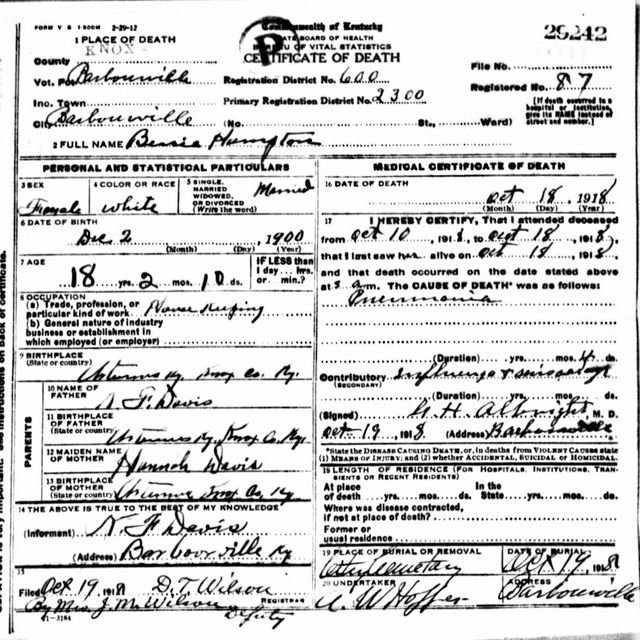 FORM V S 1-500M 2-29-12
Commonwealth of Kentucky
STATE BOARD OF HEALTH
BUREAU OF VITAL STATISTICS
CERTIFICATE OF DEATH
29242
1 PLACE OF DEATH
County KNOX
Vot. Pct. Barbourville
Inc. Town
City Barbourville
Registration District No. 600
Primary Registration District No. 2300
(No. St., Ward)
File No.
Registered No. 87
[If death occurred in a hospital or institution, give its NAME instead of street and number.]
2 FULL NAME Bessie Hampton
PERSONAL AND STATISTICAL PARTICULARS
3 SEX Female
4 COLOR OR RACE white
5 SINGLE, MARRIED WIDOWED, OR DIVORCED (Write the word) Married
6 DATE OF BIRTH
Dec 2, 1900
(Month) (Day) (Year)
7 AGE
18 yrs. 2 mos. 10 ds.
IF LESS than 1 day... hrs. or... min.?
8 OCCUPATION
(a) Trade, profession, or particular kind of work House Keeping
(b) General nature of industry business or establishment in which employed (or employer)
9 BIRTHPLACE
(State or country)
Ky. Knox Co. Ky.
10 NAME OF FATHER
F. Davis
11 BIRTHPLACE OF FATHER
(State or country)
Ky. Knox Co. Ky.
12 MAIDEN NAME OF MOTHER
Hannah Davis
13 BIRTHPLACE OF MOTHER
(State or country)
Knox Co. Ky
PARENTS
14 THE ABOVE IS TRUE TO THE BEST OF MY KNOWLEDGE
(Informant) F Davis
(Address) Barbourville Ky
15
Filed Oct 19, 1918 D. T. Wilson
REGISTRAR
By Mrs. J. M. Wilson Deputy
11-3184
MEDICAL CERTIFICATE OF DEATH
16 DATE OF DEATH
Oct 18, 1918
(Month) (Day) (Year)
17 I HEREBY CERTIFY, That I attended deceased
from Oct 10, 1918, to Oct 18, 1918,
that I last saw her alive on Oct 18, 1918,
and that death occurred on the date stated above
at m. The CAUSE OF DEATH* was as follows:
Pneumonia
(Duration) yrs. mos. ds.
Contributory Influenza
(SECONDARY)
(Duration) yrs. mos. ds.
(Signed) H. Albright, M. D.
Oct 19, 1918 (Address) Barbourville
*State the DISEASE CAUSING DEATH, or, in deaths from VIOLENT CAUSES state (1) MEANS OF INJURY; and (2) whether ACCIDENTAL, SUICIDAL, or HOMICIDAL.
18 LENGTH OF RESIDENCE (FOR HOSPITALS, INSTITUTIONS, TRANSIENTS OR RECENT RESIDENTS)
At place of death yrs. mos. ds.
In the State yrs. mos. ds.
Where was disease contracted, if not at place of death?
Former or usual residence
19 PLACE OF BURIAL OR REMOVAL
City Cemetary
DATE OF BURIAL
Oct 19, 1918
20 UNDERTAKER
A. W Hopper
ADDRESS
Barbourville